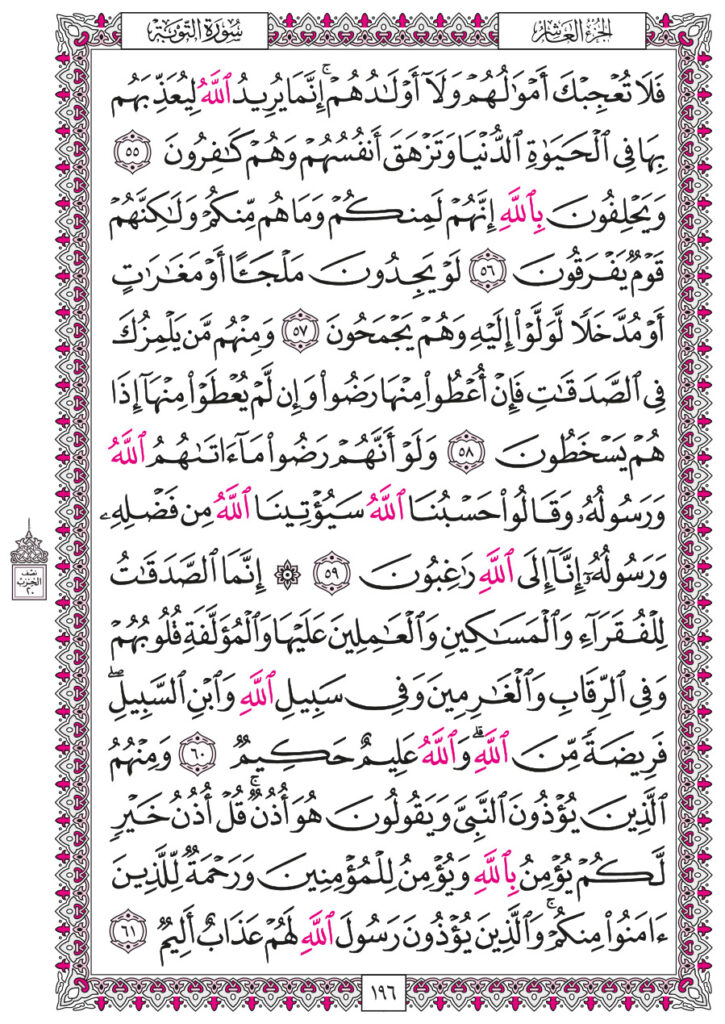 الجزء العاشر
سورة التوبة
فَلَا تُعۡجِبۡكَ أَمۡوَٰلُهُمۡ وَلَآ أَوۡلَٰدُهُمۡۚ إِنَّمَا يُرِيدُ ٱللَّهُ لِيُعَذِّبَهُم
بِهَا فِي ٱلۡحَيَوٰةِ ٱلدُّنۡيَا وَتَزۡهَقَ أَنفُسُهُمۡ وَهُمۡ كَٰفِرُونَ ٥٥
وَيَحۡلِفُونَ بِٱللَّهِ إِنَّهُمۡ لَمِنكُمۡ وَمَا هُم مِّنكُمۡ وَلَٰكِنَّهُمۡ
قَوۡمٞ يَفۡرَقُونَ ٥٦ لَوۡ يَجِدُونَ مَلۡجَـًٔا أَوۡ مَغَٰرَٰتٍ
أَوۡ مُدَّخَلٗا لَّوَلَّوۡاْ إِلَيۡهِ وَهُمۡ يَجۡمَحُونَ ٥٧ وَمِنۡهُم مَّن يَلۡمِزُكَ
فِي ٱلصَّدَقَٰتِ فَإِنۡ أُعۡطُواْ مِنۡهَا رَضُواْ وَإِن لَّمۡ يُعۡطَوۡاْ مِنۡهَآ إِذَا
هُمۡ يَسۡخَطُونَ ٥٨ وَلَوۡ أَنَّهُمۡ رَضُواْ مَآ ءَاتَىٰهُمُ ٱللَّهُ
وَرَسُولُهُۥ وَقَالُواْ حَسۡبُنَا ٱللَّهُ سَيُؤۡتِينَا ٱللَّهُ مِن فَضۡلِهِۦ
وَرَسُولُهُۥٓ إِنَّآ إِلَى ٱللَّهِ رَٰغِبُونَ ٥٩ ۞ إِنَّمَا ٱلصَّدَقَٰتُ
لِلۡفُقَرَآءِ وَٱلۡمَسَٰكِينِ وَٱلۡعَٰمِلِينَ عَلَيۡهَا وَٱلۡمُؤَلَّفَةِ قُلُوبُهُمۡ
وَفِي ٱلرِّقَابِ وَٱلۡغَٰرِمِينَ وَفِي سَبِيلِ ٱللَّهِ وَٱبۡنِ ٱلسَّبِيلِۖ
فَرِيضَةٗ مِّنَ ٱللَّهِۗ وَٱللَّهُ عَلِيمٌ حَكِيمٞ ٦٠ وَمِنۡهُمُ
ٱلَّذِينَ يُؤۡذُونَ ٱلنَّبِيَّ وَيَقُولُونَ هُوَ أُذُنٞۚ قُلۡ أُذُنُ خَيۡرٖ
لَّكُمۡ يُؤۡمِنُ بِٱللَّهِ وَيُؤۡمِنُ لِلۡمُؤۡمِنِينَ وَرَحۡمَةٞ لِّلَّذِينَ
ءَامَنُواْ مِنكُمۡۚ وَٱلَّذِينَ يُؤۡذُونَ رَسُولَ ٱللَّهِ لَهُمۡ عَذَابٌ أَلِيمٞ ٦١
نصف
الحزب
٢٠
١٩٦